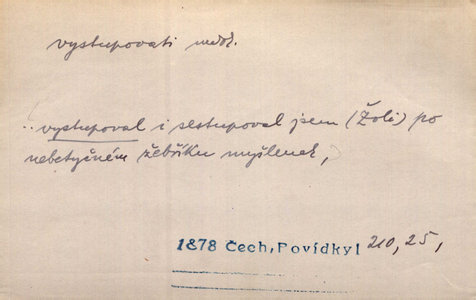 vystupovati nedok.
„vystupoval i sestupoval jsem (Žoli) po
nebetyčném žebříku myšlenek,
1878 Čech, Povídky I 210, 25,